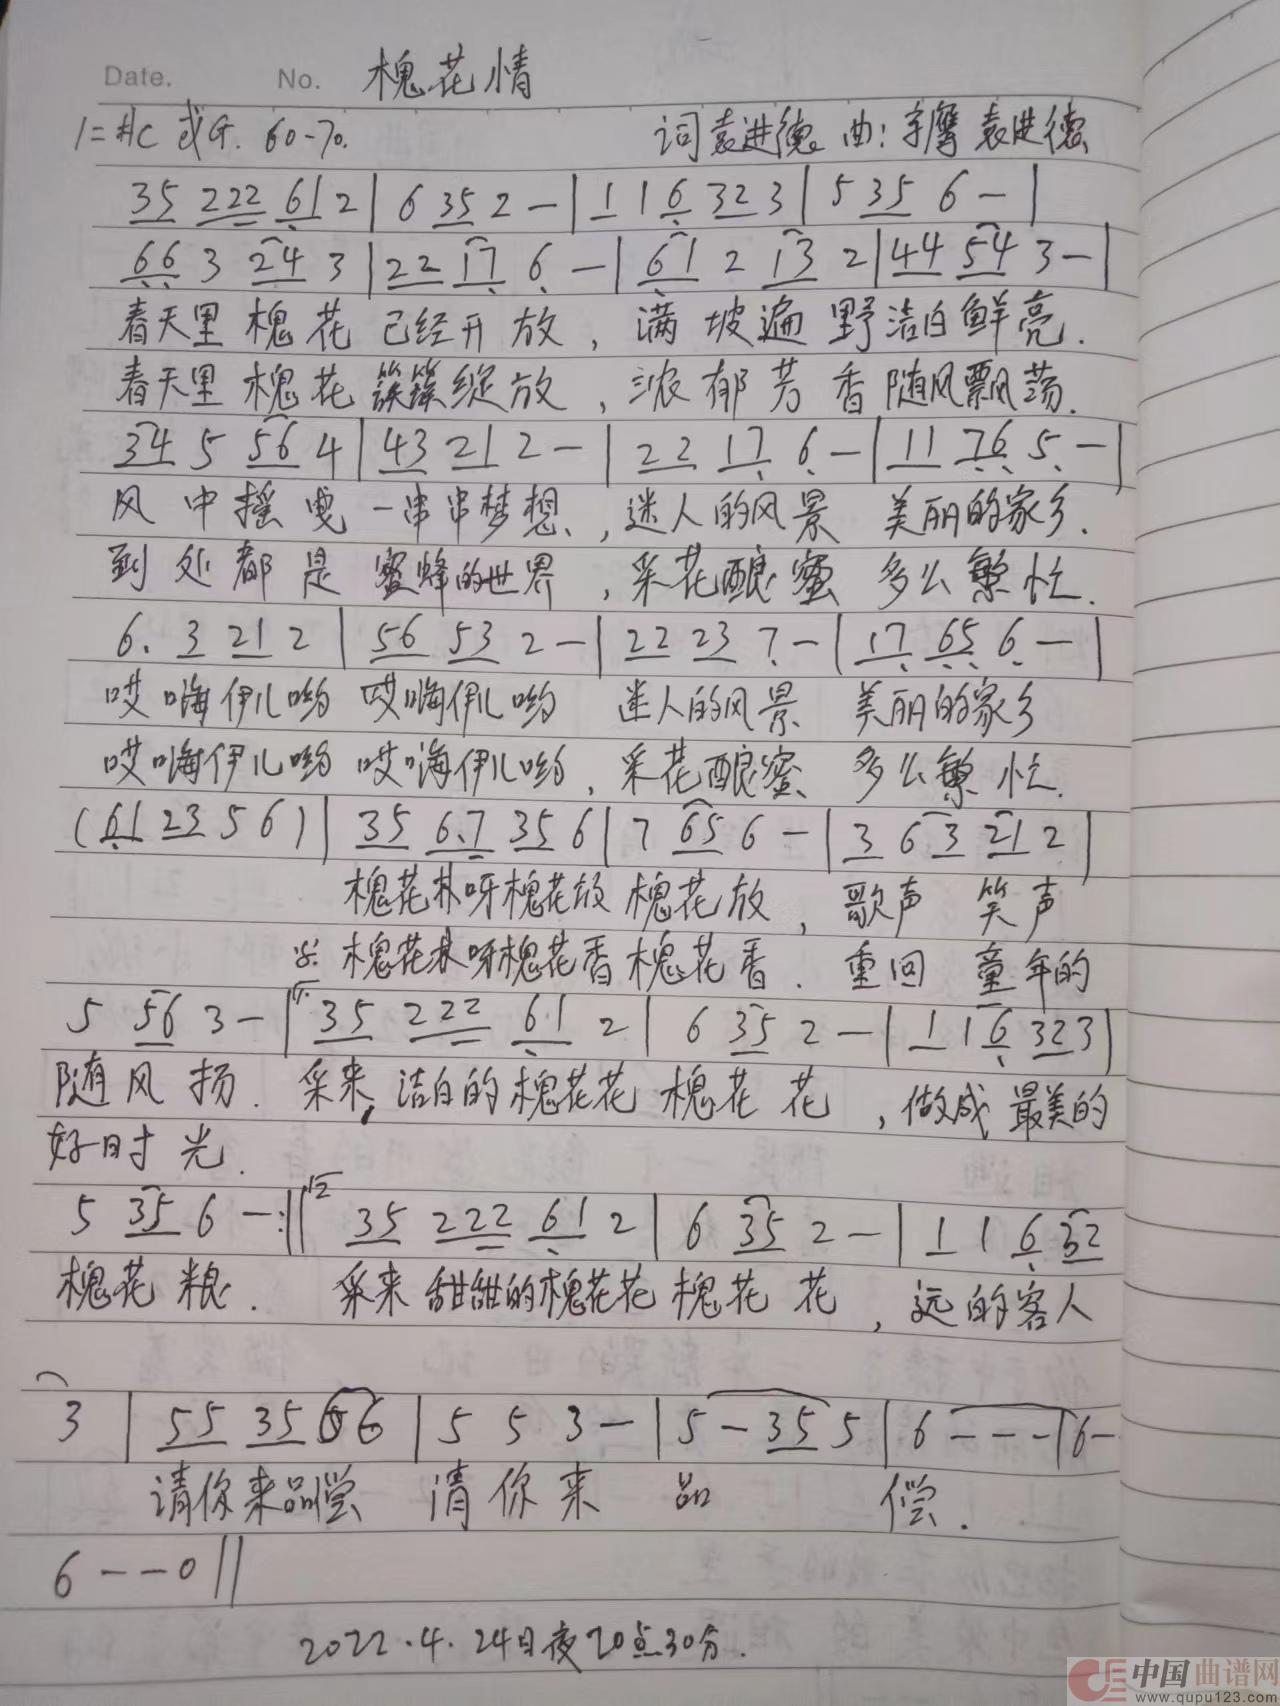 Date. No. 槐花情
1=#C 或G. 60-70. 词袁进德 曲: 宇鹰 袁进德
35 222 61 2 | 6 35 2 - | 1 1 6 32 3 | 5 35 6 - |
66 3 24 3 | 22 17 6 - | 61 2 13 2 | 44 54 3 - |
春天里 槐花 已经开放, 满坡遍野洁白鲜亮.
春天里 槐花 簇簇绽放, 浓郁芳香随风飘荡.
34 5 56 4 | 43 21 2 - | 22 17 6 - | 11 76 5 - |
风中摇曳 一串串梦想, 迷人的风景 美丽的家乡.
到处都是 蜜蜂的世界, 采花酿蜜 多么繁忙.
6. 3 21 2 | 56 53 2 - | 22 23 7 - | 17 65 6 - |
哎嗨伊儿哟 哎嗨伊儿哟 迷人的风景 美丽的家乡
哎嗨伊儿哟 哎嗨伊儿哟, 采花酿蜜 多么繁忙.
(61 23 5 6) | 35 6.7 35 6 | 7 65 6 - | 3 6 3 21 2 |
槐花林呀槐花放 槐花放, 歌声 笑声
槐花林呀槐花香 槐花香. 重回 童年的
5 56 3 - | 1. 35 222 61 2 | 6 35 2 - | 1 1 6 32 3 |
随风扬. 采来洁白的槐花花 槐花花, 做成最美的
好时光.
5 35 6 - :|| 2 35 222 61 2 | 6 35 2 - | 1 1 6 32
槐花粮. 采来甜甜的槐花花 槐花花, 远的客人
3 | 55 35 66 | 5 5 3 - | 5 - 35 5 | 6 - - - | 6 -
请你来品尝 请你来 品 偿.
6 - - 0 ||
2022.4.24日夜20点30分.
中国曲谱网
www.qupu123.com